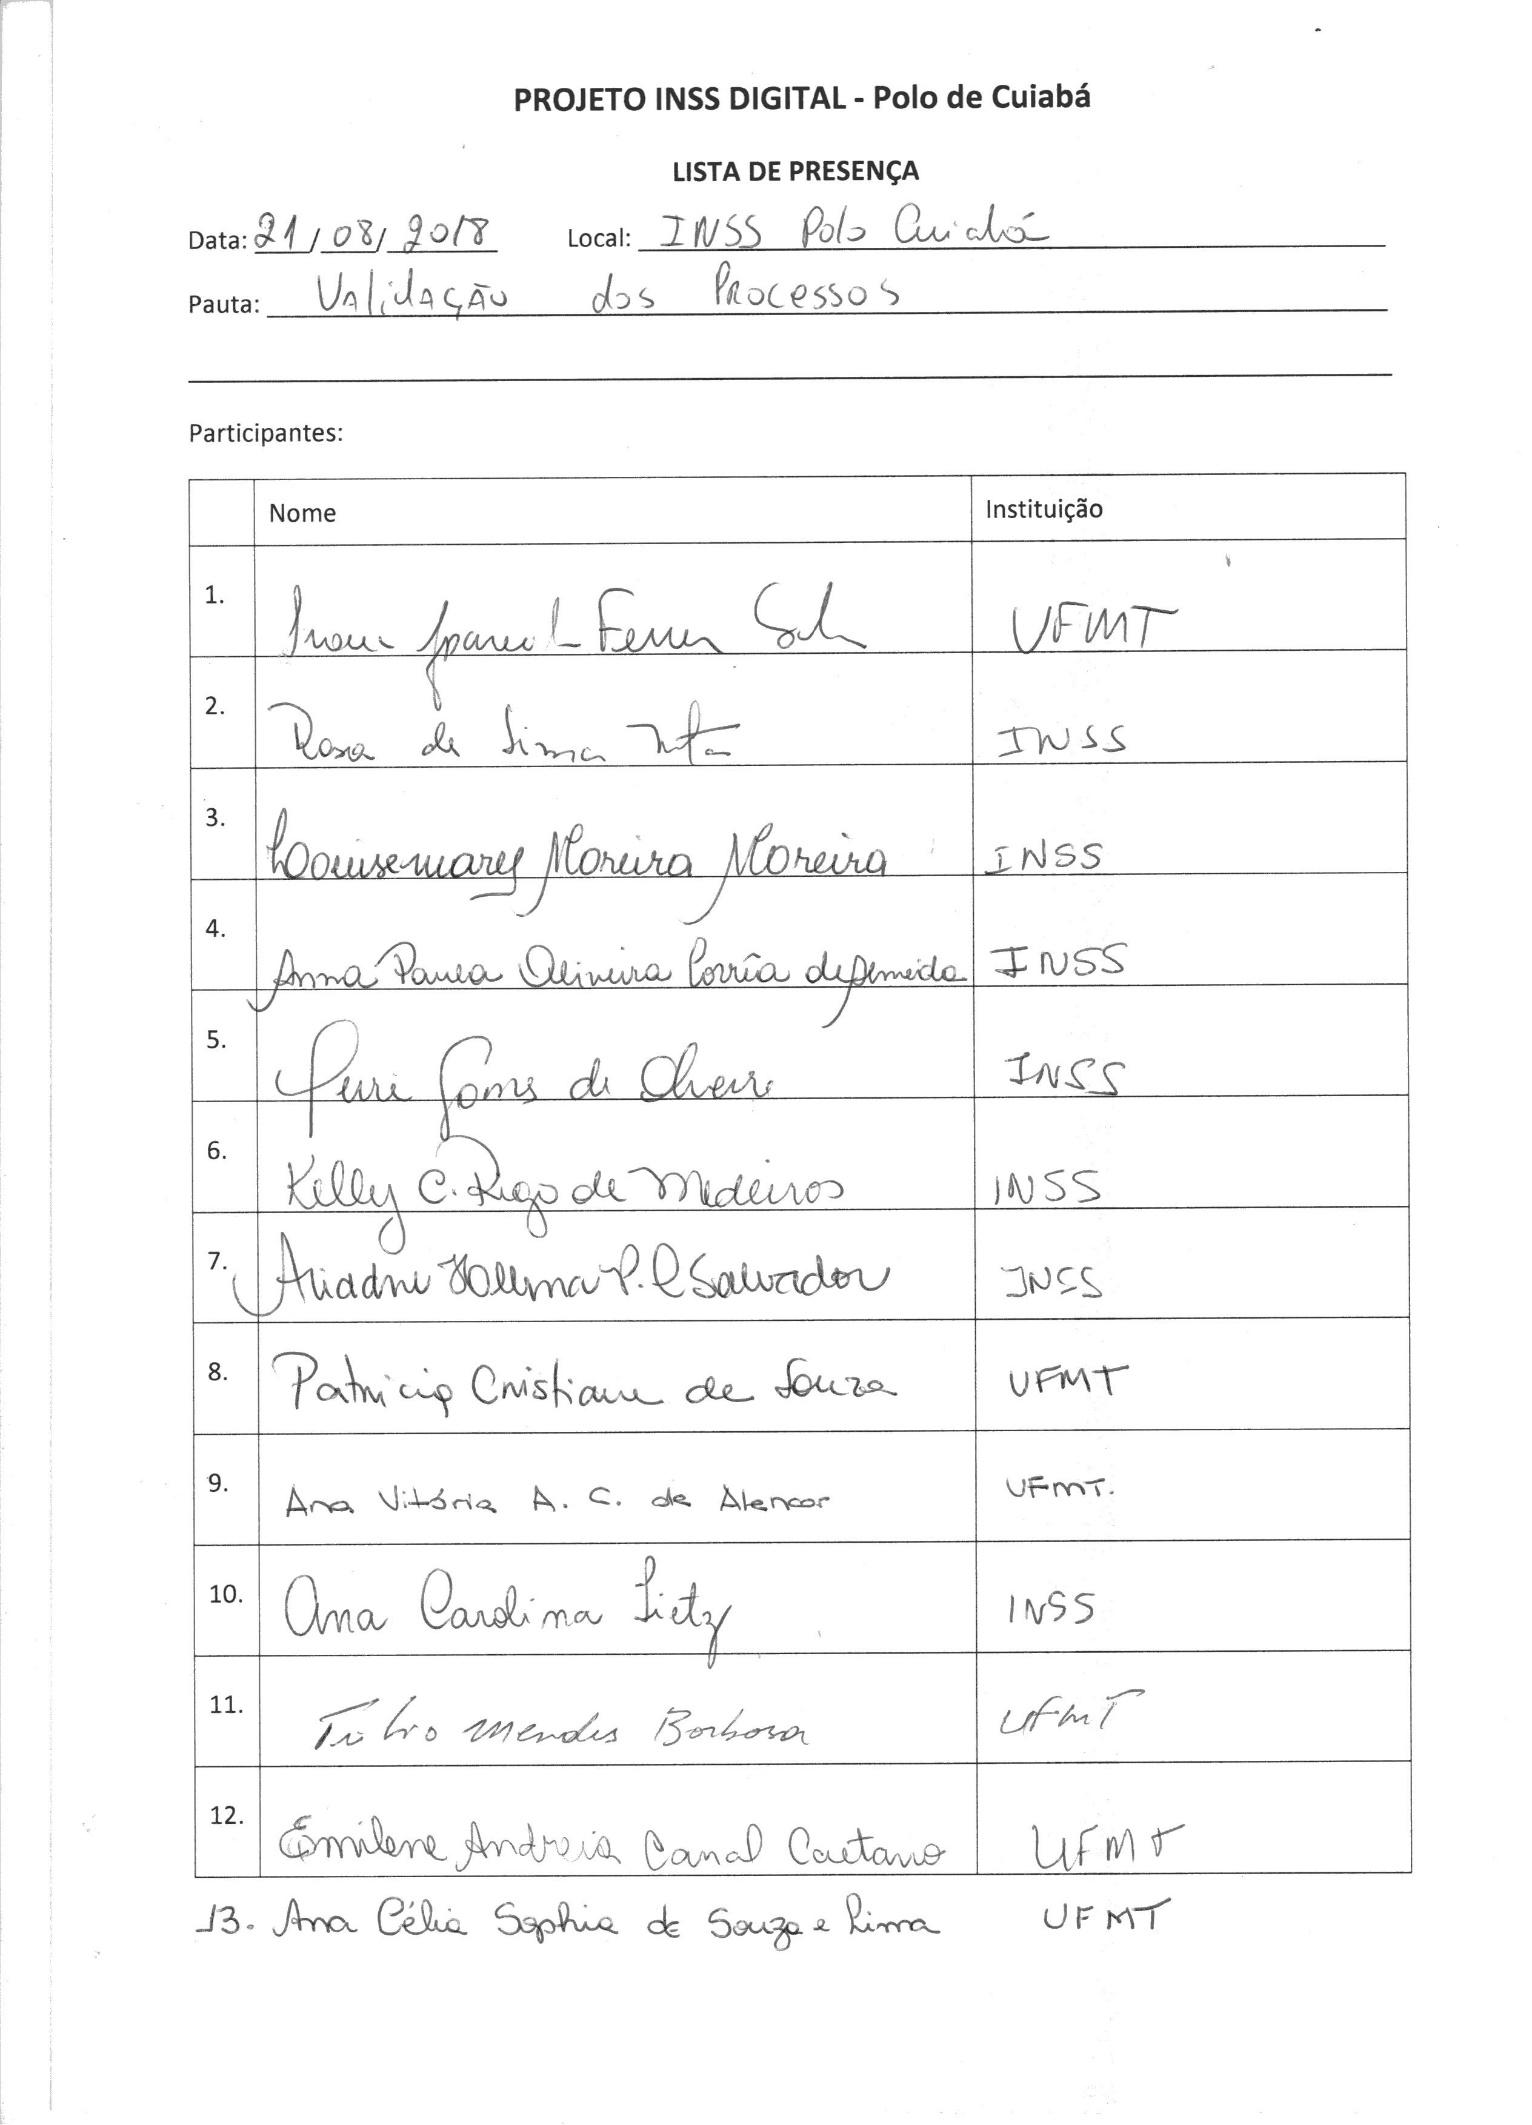 PROJETO INSS DIGITAL - Polo de Cuiabá
LISTA DE PRESENÇA
Data: 21/08/2018 Local: INSS Polo Cuiabá
Pauta: Validação dos Processos
Participantes:
Nome Instituição
1. Ferrer UFMT
2. Rosa de Lima INSS
3. Louisemary Moreira Moreira INSS
4. Anna Paula Oliveira Corrêa de Almeida INSS
5. Yuri Gomes de Oliveira INSS
6. Kelly C. Rego de Medeiros INSS
7. Ariadne P. Salvador INSS
8. Patricia Cristiane de Souza UFMT
9. Ana Vitória A. C. de Alencar UFMT.
10. Ana Carolina Tietz INSS
11. Mendes Barbosa UFMT
12. Emilene Andreia Canal Caetano UFMT
13. Ana Célia Sophia de Souza e Lima UFMT